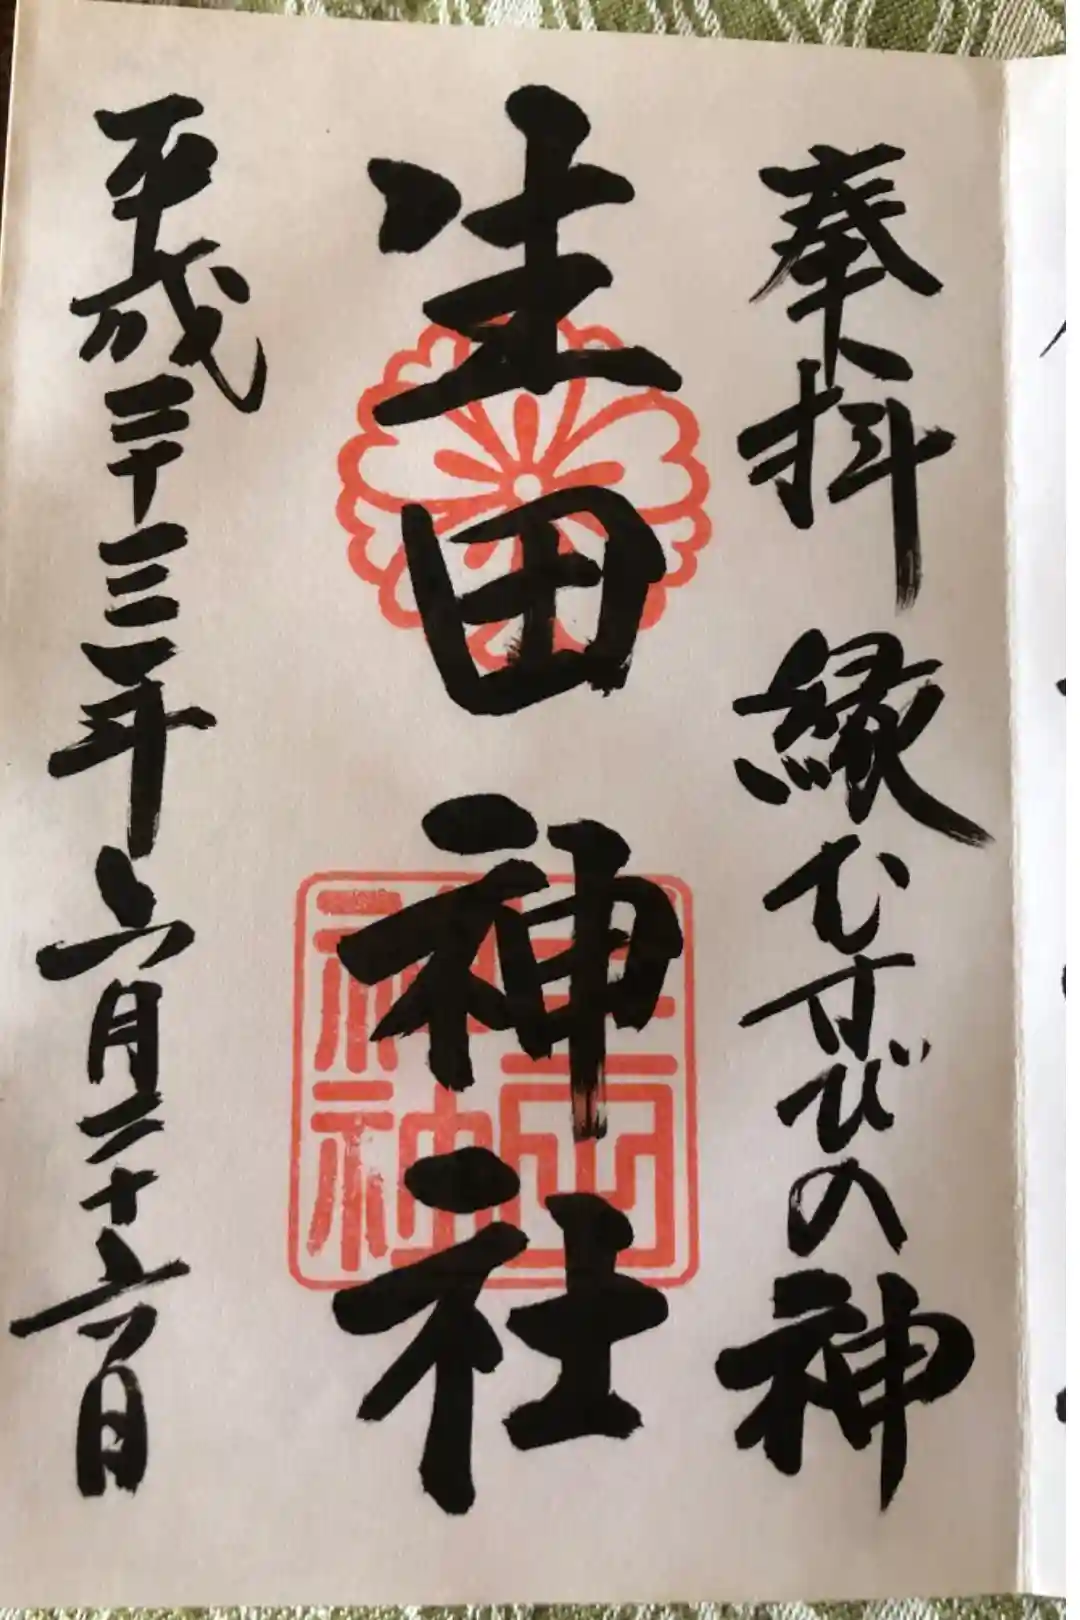 奉拝 縁むすびの神
生田神社
生田神社
平成二十三年六月二十六日